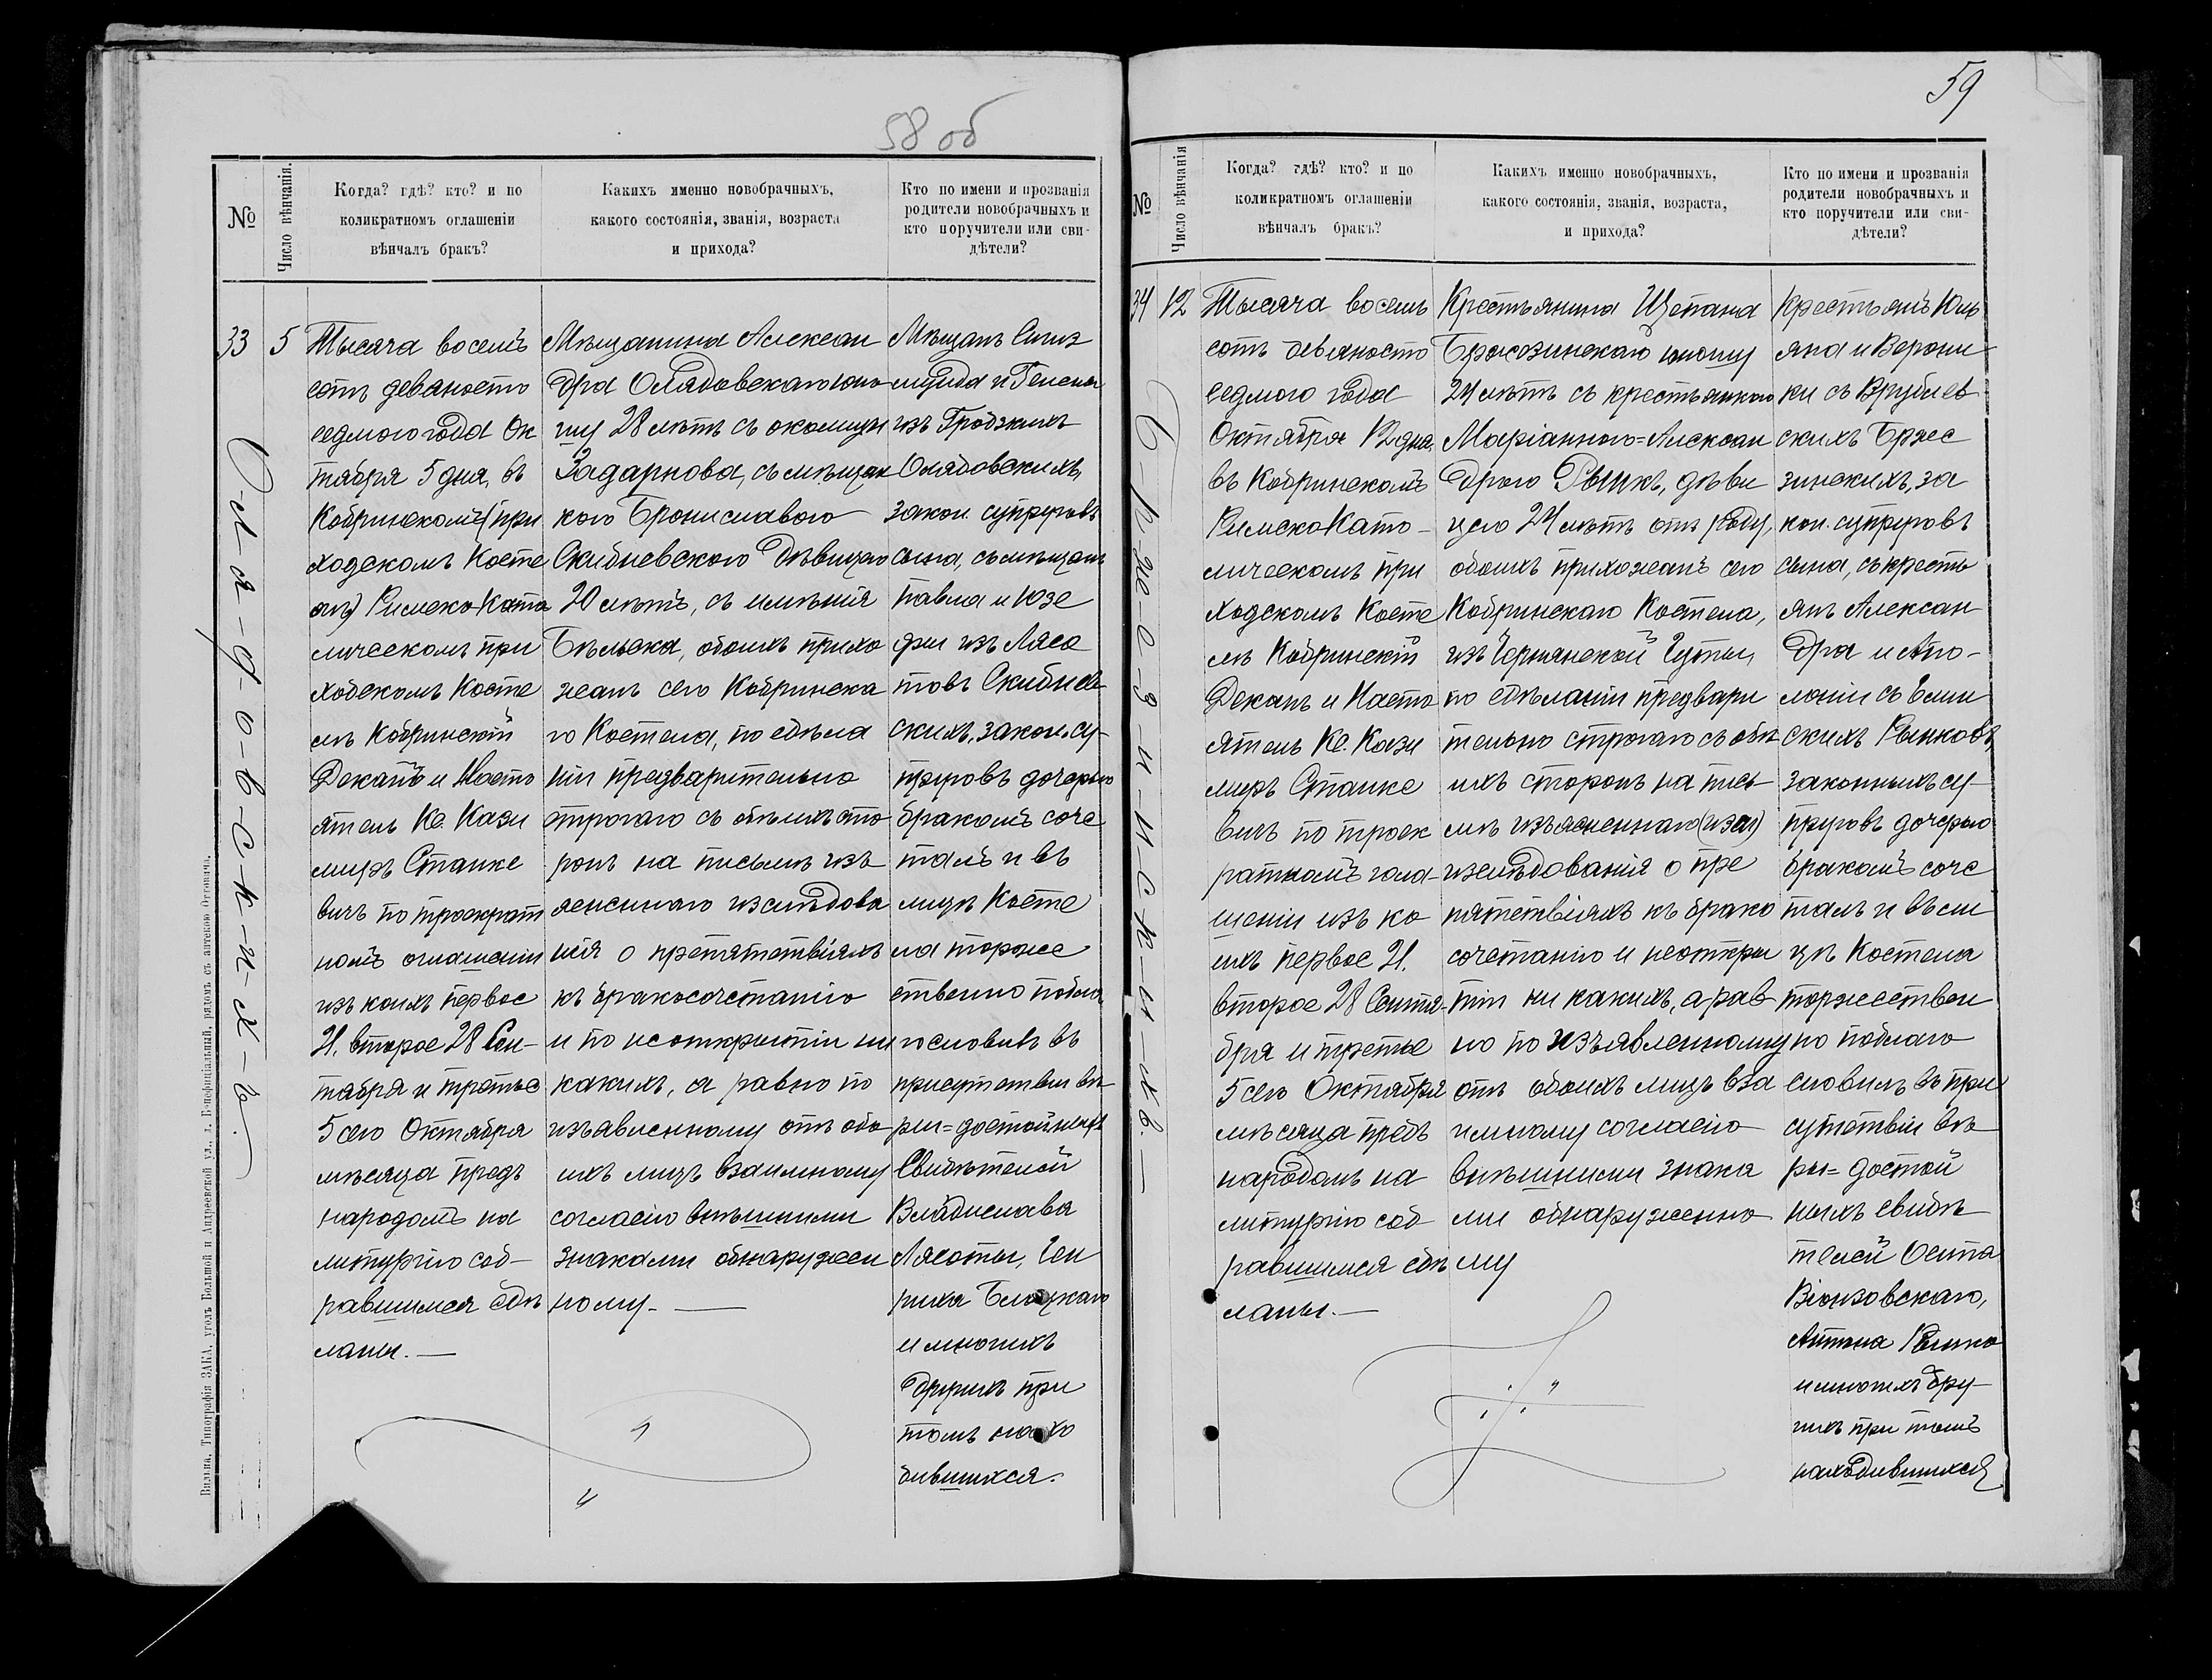 58 об
№
Число вѣнчанія.
Когда? гдѣ? кто? и по
коликратномъ оглашеніи
вѣнчалъ бракъ?
Какихъ именно новобрачныхъ,
какого состоянія, званія, возраста
и прихода?
Кто по имени и прозванія
родители новобрачныхъ и
кто поручители или сви-
дѣтели?
33
5
О-л-я-д-о-в-с-к-и-х-ъ.
Тысяча восемъ
сотъ девяносто
седмого года Ок
тября 5 дня, въ
Кобринскомъ (при
ходскомъ Косте
олѣ) Римско Като
лическомъ при
ходскомъ Косте
лѣ Кобринскій
Деканъ и Насто
ятель Кс. Кази
миръ Станке
вичъ по троекрат
номъ оглашеніи
изъ коихъ первое
21. второе 28 Сен-
тября и третье
5 сего Октября
мѣсяца предъ
народомъ на
литургію соб-
равшимся сдѣ
ланы. —
Мѣщанина Алексан
дра Олядовскаго юно
шу 28 лѣтъ съ околицы
Задарнова, съ мѣщан
кою Брониславою
Скибневскою дѣвицею
20 лѣтъ, съ имѣнія
Бѣльска, обоихъ прихо
жанъ сего Кобринска
го Костела, по сдѣла
ніи предварительно
строгаго съ обѣихъ сто
ронъ на письмѣ изъ
ясненнаго изслѣдова
нія о препятствіяхъ
къ бракосочетанію
и по неоткрытіи ни
какихъ, а равно по
изъявленному отъ обо
ихъ лицъ взаимному
согласію внѣшними
знаками обнаружен
ному. —
Мѣщанъ Сигиз
мунда и Гелены
изъ Гродзкихъ
Олядовскихъ,
закон. супруговъ
сына, съ мѣщанъ
Павла и Юзе
фы изъ Лясо
товъ Скибнев
скихъ, закон. су-
пруговъ дочерью
бракомъ соче
талъ и въ
лицѣ Косте
ла торже
ственно побла
гословилъ въ
присутствіи вѣ
ры=достойныхъ
Свидѣтелей
Владислава
Лясоты, Ген
рика Блоцкаго
и многихъ
другихъ при
томъ нахо
дившихся.
Вильна, Типографія ЗАКА, уголъ Большой и Андреевской ул.,
59
№
Число вѣнчанія
Когда? гдѣ? кто? и по
коликратномъ оглашеніи
вѣнчалъ бракъ?
Какихъ именно новобрачныхъ,
какого состоянія, званія, возраста,
и прихода?
Кто по имени и прозванія
родители новобрачныхъ и
кто поручители или сви-
дѣтели?
34
12
Б-р-ж-е-з-и-н-с-к-и-х-ъ. —
Тысяча восемъ
сотъ девяносто
седмого года
Октября 12 дня,
въ Кобринскомъ
Римско Като-
лическомъ при
ходскомъ Косте
лѣ Кобринскій
Деканъ и Насто
ятель Кс. Кази
миръ Станке
вичъ по троек
ратномъ огла-
шеніи изъ ко
ихъ первое 21.
второе 28 Сентя-
бря и третье
5 сего Октября
мѣсяца предъ
народомъ на
литургію соб-
равшимся сдѣ
ланы. —
Крестьянина Щепана
Бржозинскаго юношу
24 лѣтъ съ крестьянкою
Маріанною=Алексан
дрою Рынкъ, дѣви
цею 24 лѣтъ отъ роду,
обоихъ прихожанъ сего
Кобринскаго Костела,
изъ Чернянской Гуты,
по сдѣланіи предвари
тельно строгаго съ обѣ
ихъ сторонъ на пись
мѣ изъясненнаго (изсл)
изслѣдованія о пре
пятствіяхъ къ брако
сочетанію и неоткры
тіи ни какихъ, а рав
но по изъявленному
отъ обоихъ лицъ вза
имному согласію
внѣшними знака
ми обнаруженно
му
Крестьянъ Юль
яна и Верони
ки съ Врублев
скихъ Бржес
зинскихъ, за
кон. супруговъ
сына, съ кресть
янъ Алексан
дра и Апо-
лоніи съ
скихъ Рынковъ,
законныхъ су-
пруговъ дочерью
бракомъ соче
талъ и въ ли
цѣ Костела
торжествен
но поблаго
словилъ въ при
сутствіи вѣ
ры= достой
ныхъ свидѣ
телей Осипа
Вюнзовскаго,
Антона Рынка
и многихъ дру-
гихъ при томъ
находившихся.